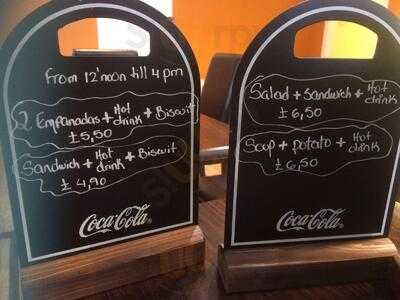 From 12'noon till 4 pm
2 Empanadas + Hot drink + Biscuit
£5,50
Sandwich + Hot drink + Biscuit
£ 4,90
Coca-Cola
Salad + Sandwich + Hot drink
£ 6,50
Soup + potato + Hot drink
£6,50
Coca-Cola